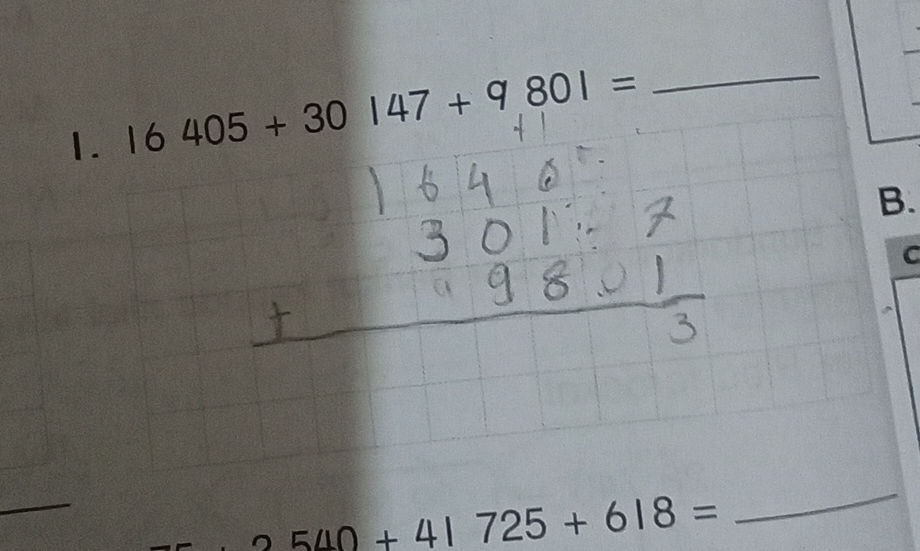 1. 16 405 + 30 147 + 9 801 = ______
+1
1 6 4 0 5
3 0 1 4 7
9 8 0 1
+
3
B.
C
2 540 + 41 725 + 618 = ______